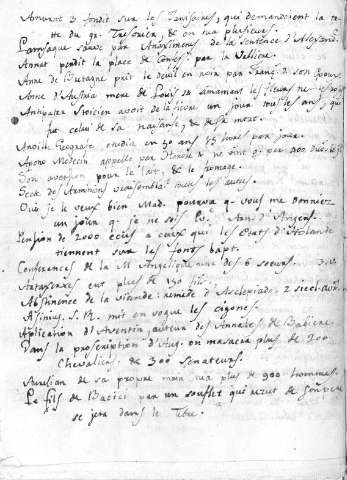 Amurat 3 fondit sur les Janissaires, qui demandoient la te-
te du gr. Tresorier, & en tua plusieurs.
Lampsaque sauvée par Anaximenes de la sentence d'Alexand.
Annat perdit la place de Confess. par la Valliere.
Anne de Bretagne prit le deuil en noir par
Anne d'Austria mere de Louis 14 aimant les fleurs ne
Antipater Stoicien avoit de la fievre un jour tous les ans, qui
fut celui de sa naissance, & de sa mort.
Anville Geographe etudia en 50 ans 15 heures par jour.
Apono Medecin appelle par Honoré 4 ne vint q. par 400 duc. par j.
Son aversion pour le lait, & le fromage.
Secte de Memnons
Oui je le veux bien Mad. pourvu q. vous me donniez
un jour q. je ne sois Ev. Arn. d'Angers.
Pension de 2000 ecus a ceux qui les Etats d'Holande
tiennent sur les fonts bapt.
Conferences de la M. Angelique une des 6 soeurs.
Artaxerxes eut plus de 150 fils.
Abstinence de la viande: remede d'Asclepiade. 2 siecl. avan.
Asinius S. R. mit en vogue les cigones.
Aplication d'Aventin, auteur des Annales de Baviere.
Dans la proscription d'Aug. on masacra plus de 200
Chevaliers, & 300 senateurs.
Aurelian de sa propre main tua plus de 900 hommes.
Le fils de Bacici par un souflet qui recut de son pere
se jeta dans le Tibre.